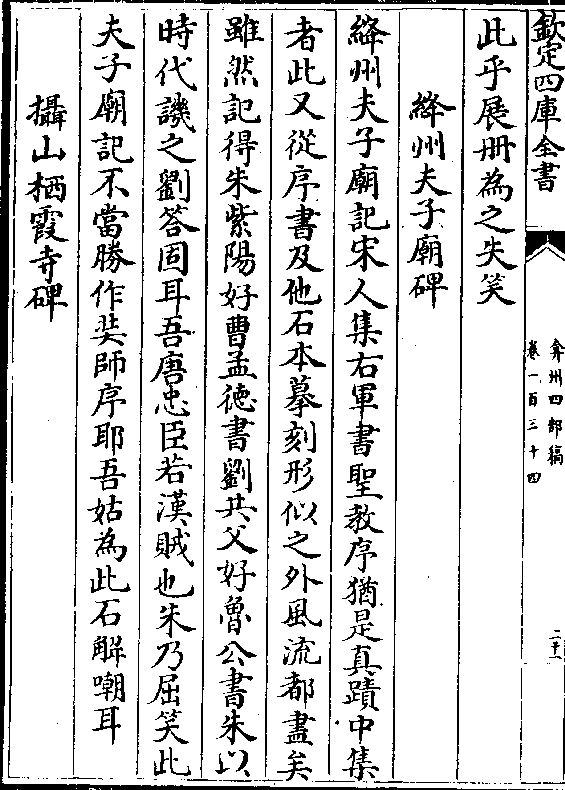 欽定四庫全書
弇州四部稿
卷一百三十四
二十一
此乎展冊為之失笑
絳州夫子廟碑
絳州夫子廟記宋人集右軍書聖教序猶是真蹟中集
者此又從序書及他石本摹刻形似之外風流都盡矣
雖然記得朱紫陽好曹孟德書劉共父好魯公書朱以
時代譏之劉答固耳吾唐忠臣若漢賊也朱乃屈笑此
夫子廟記不當勝作奘師序耶吾姑為此石解嘲耳
攝山栖霞寺碑